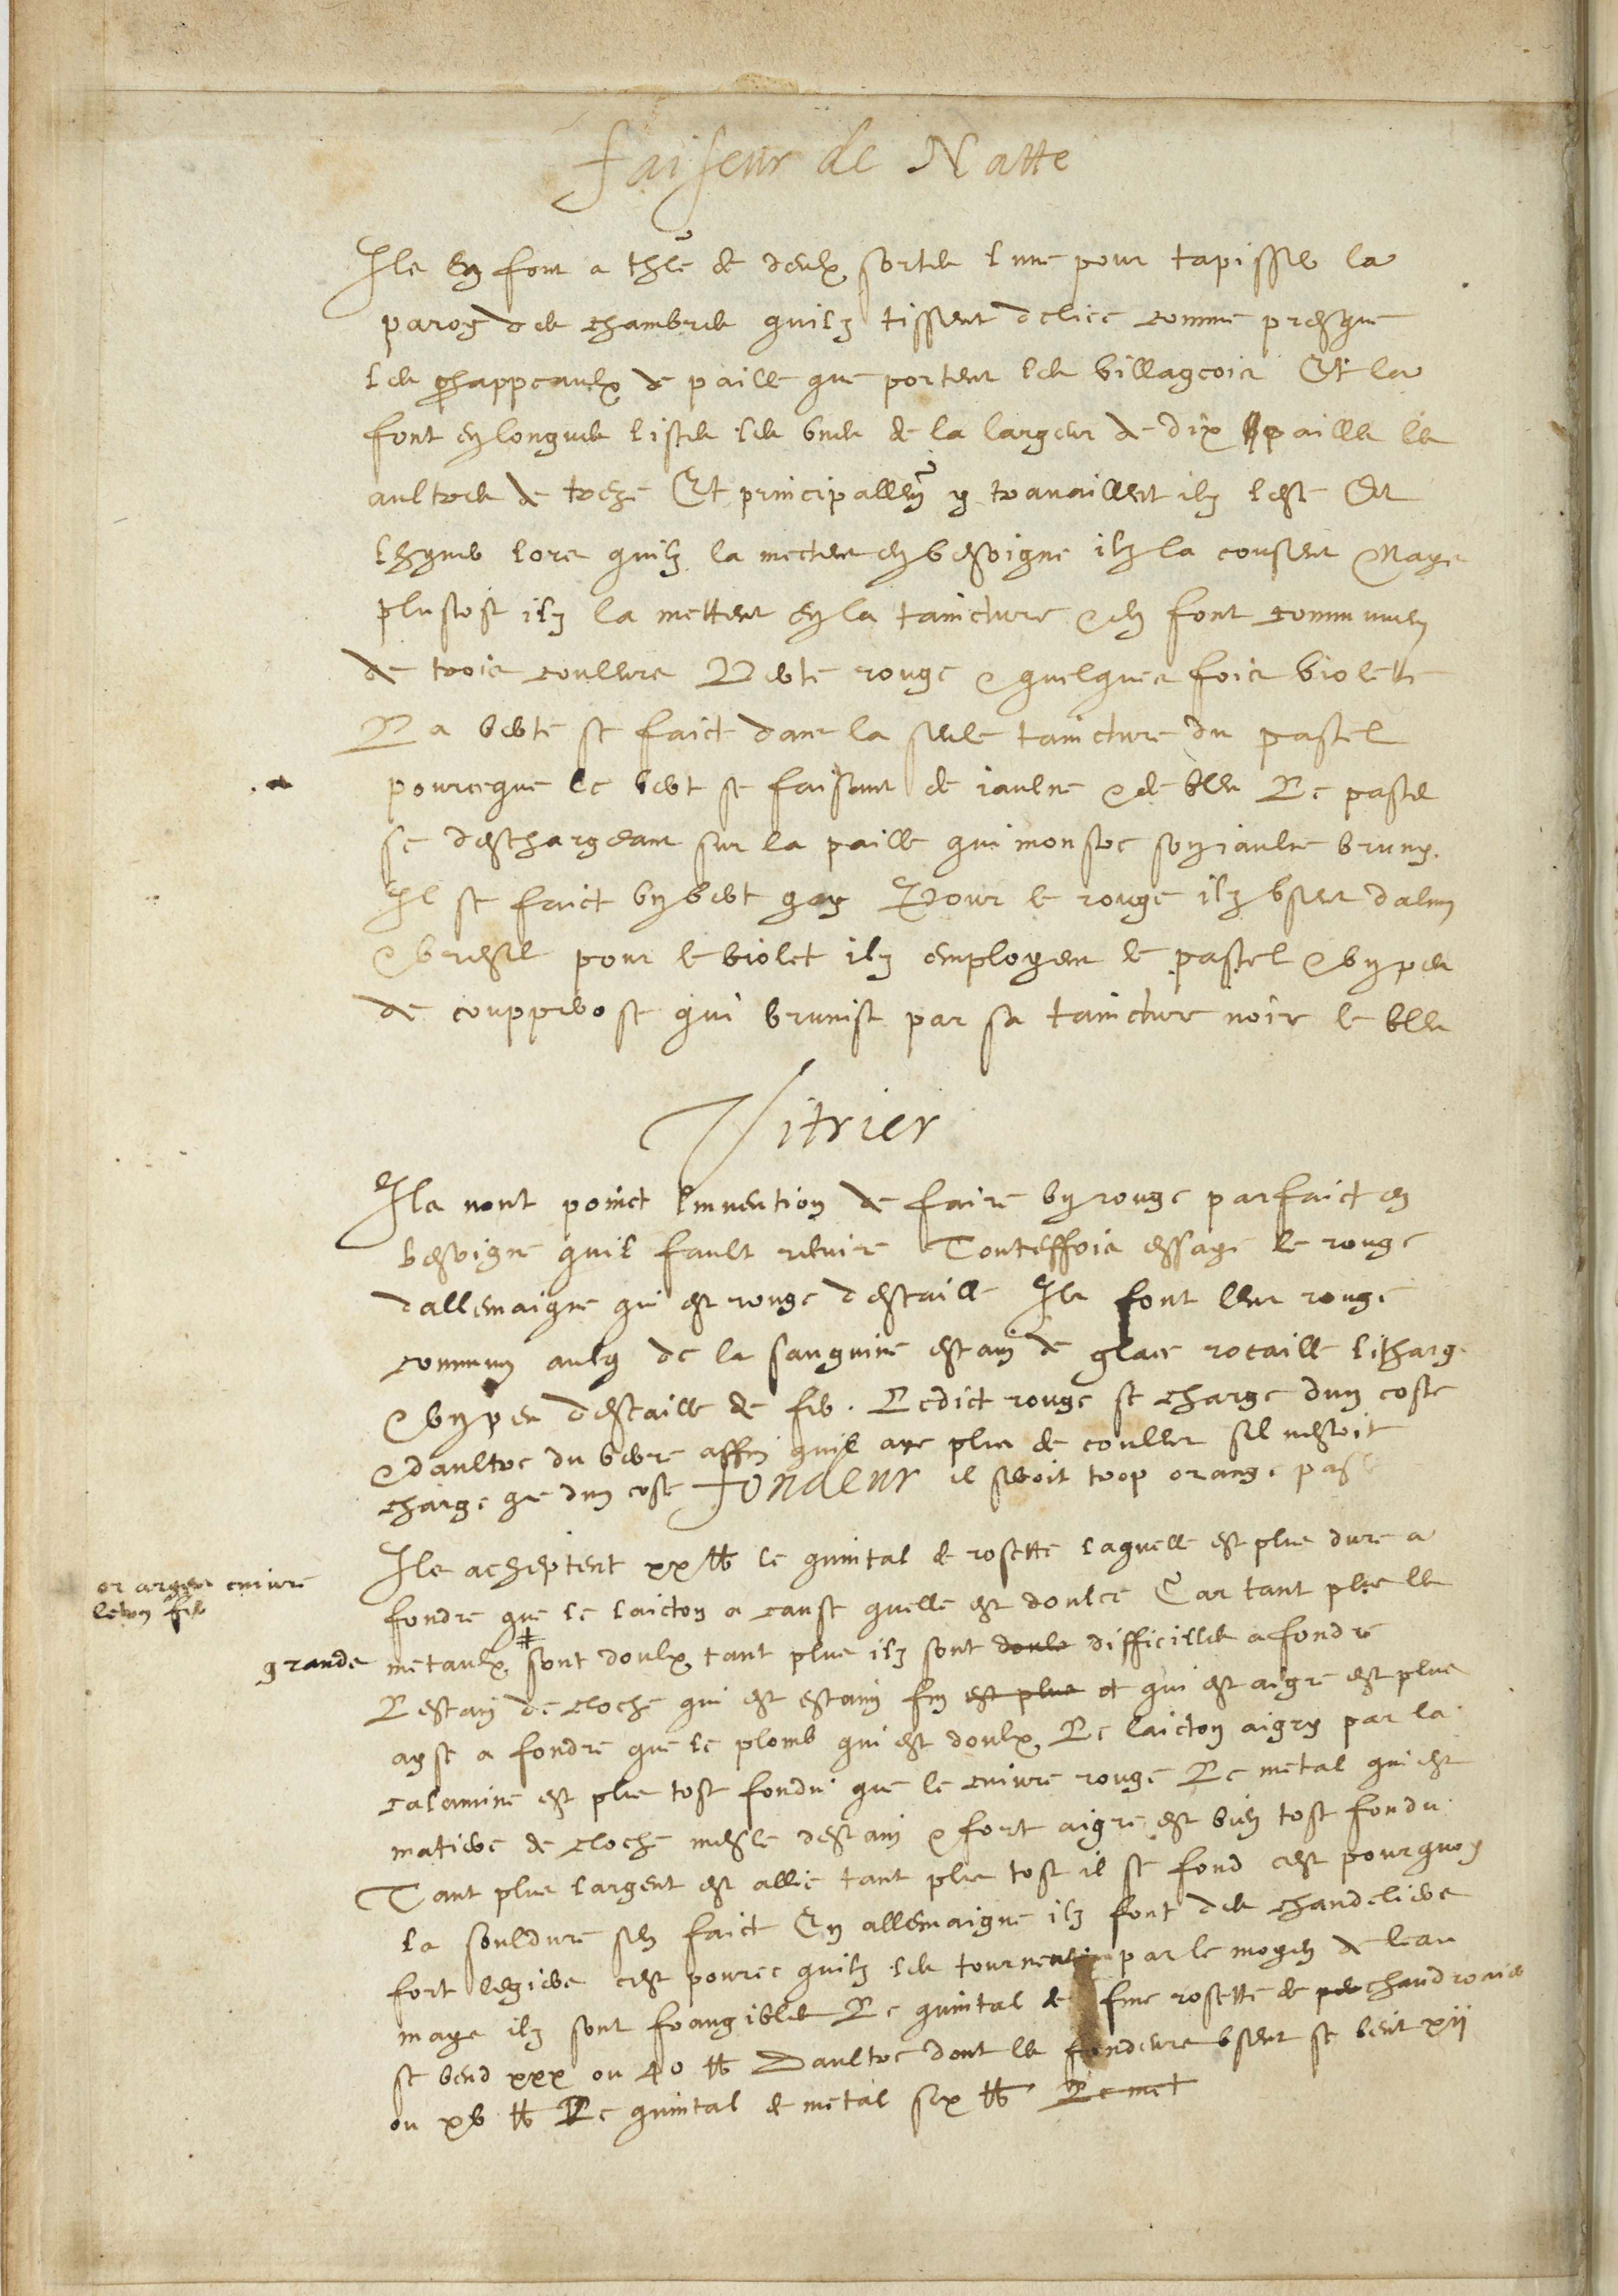 faiseur de Natte
Ils en font a thle de deulx sortes lune pour tapisser la
paroy des chambres quilz tissent deliee comme presque
les chappeaulx de paille que portent les villageois Et la
font en longues listes les unes de la largeur de dix pailles les
aultres de treze Et principallem y travaillent ilz leste Et
lhyver lors quilz la mectent en besoigne ilz la cousent Mays
plustost ilz la mettent en la taincture & en font communem
de trois couleurs Verte rouge & quelques fois violette
La verte se faict dans la seule taincture du pastel
pourceque le vert se faisant de iaulne & de bleu Le pastel
se deschargeant sur la paille qui monstre son iaulne bruny
Il se faict un vert gay Pour le rouge ilz usent dalun
& bresil pour le violet ilz employent le pastel & un peu
de couperose qui brunist par sa taincture noire le bleu
Vitrier
Ils nont poinct linvention de faire un rouge parfaict en
besoigne quil fault recuire Touteffois essaye le rouge
dallemaigne qui est rouge descaille Ils font leur rouge
commun avecq de la sanguine estain de glace rocaille litharge
& un peu descaille de fer. Ledict rouge se charge dun coste
& daultre du verre affin quil aye plus de couleur sil nestoit
charge que dun coste il seroit trop orange pasle
fondeur
Ils acheptent xx lb le quintal de rosette laquelle est plus dure a
fondre que le laicton a cause quelle est doulce Car tant plus les
metaulx sont doulx tant plus ilz sont doulx difficilles a fondre
or argent cuivre
leton fer
grande
Lestain de cloche qui est estain fin est plus et qui est aigre est plus
ayse a fondre que le plomb qui est doulx Le laicton aigry par la
calamine est plus tost fondu que le cuivre rouge Le metal qui est
matiere de cloche mesle destain & fort aigre est bien tost fondu
Tant plus largent est allie tant plus tost il se fond cest pourquoy
la souldure sen faict En allemaigne ilz font des chandeliers
fort legiers cest pource quilz les tournent par le moyen de leau
mays ilz sont frangibles Le quintal de fine rosette de chaudronier
se vend xxx ou 40 lb Daultre dont les fondeurs usent se vent xii
ou xv lb Le quintal de metal six lb Le met